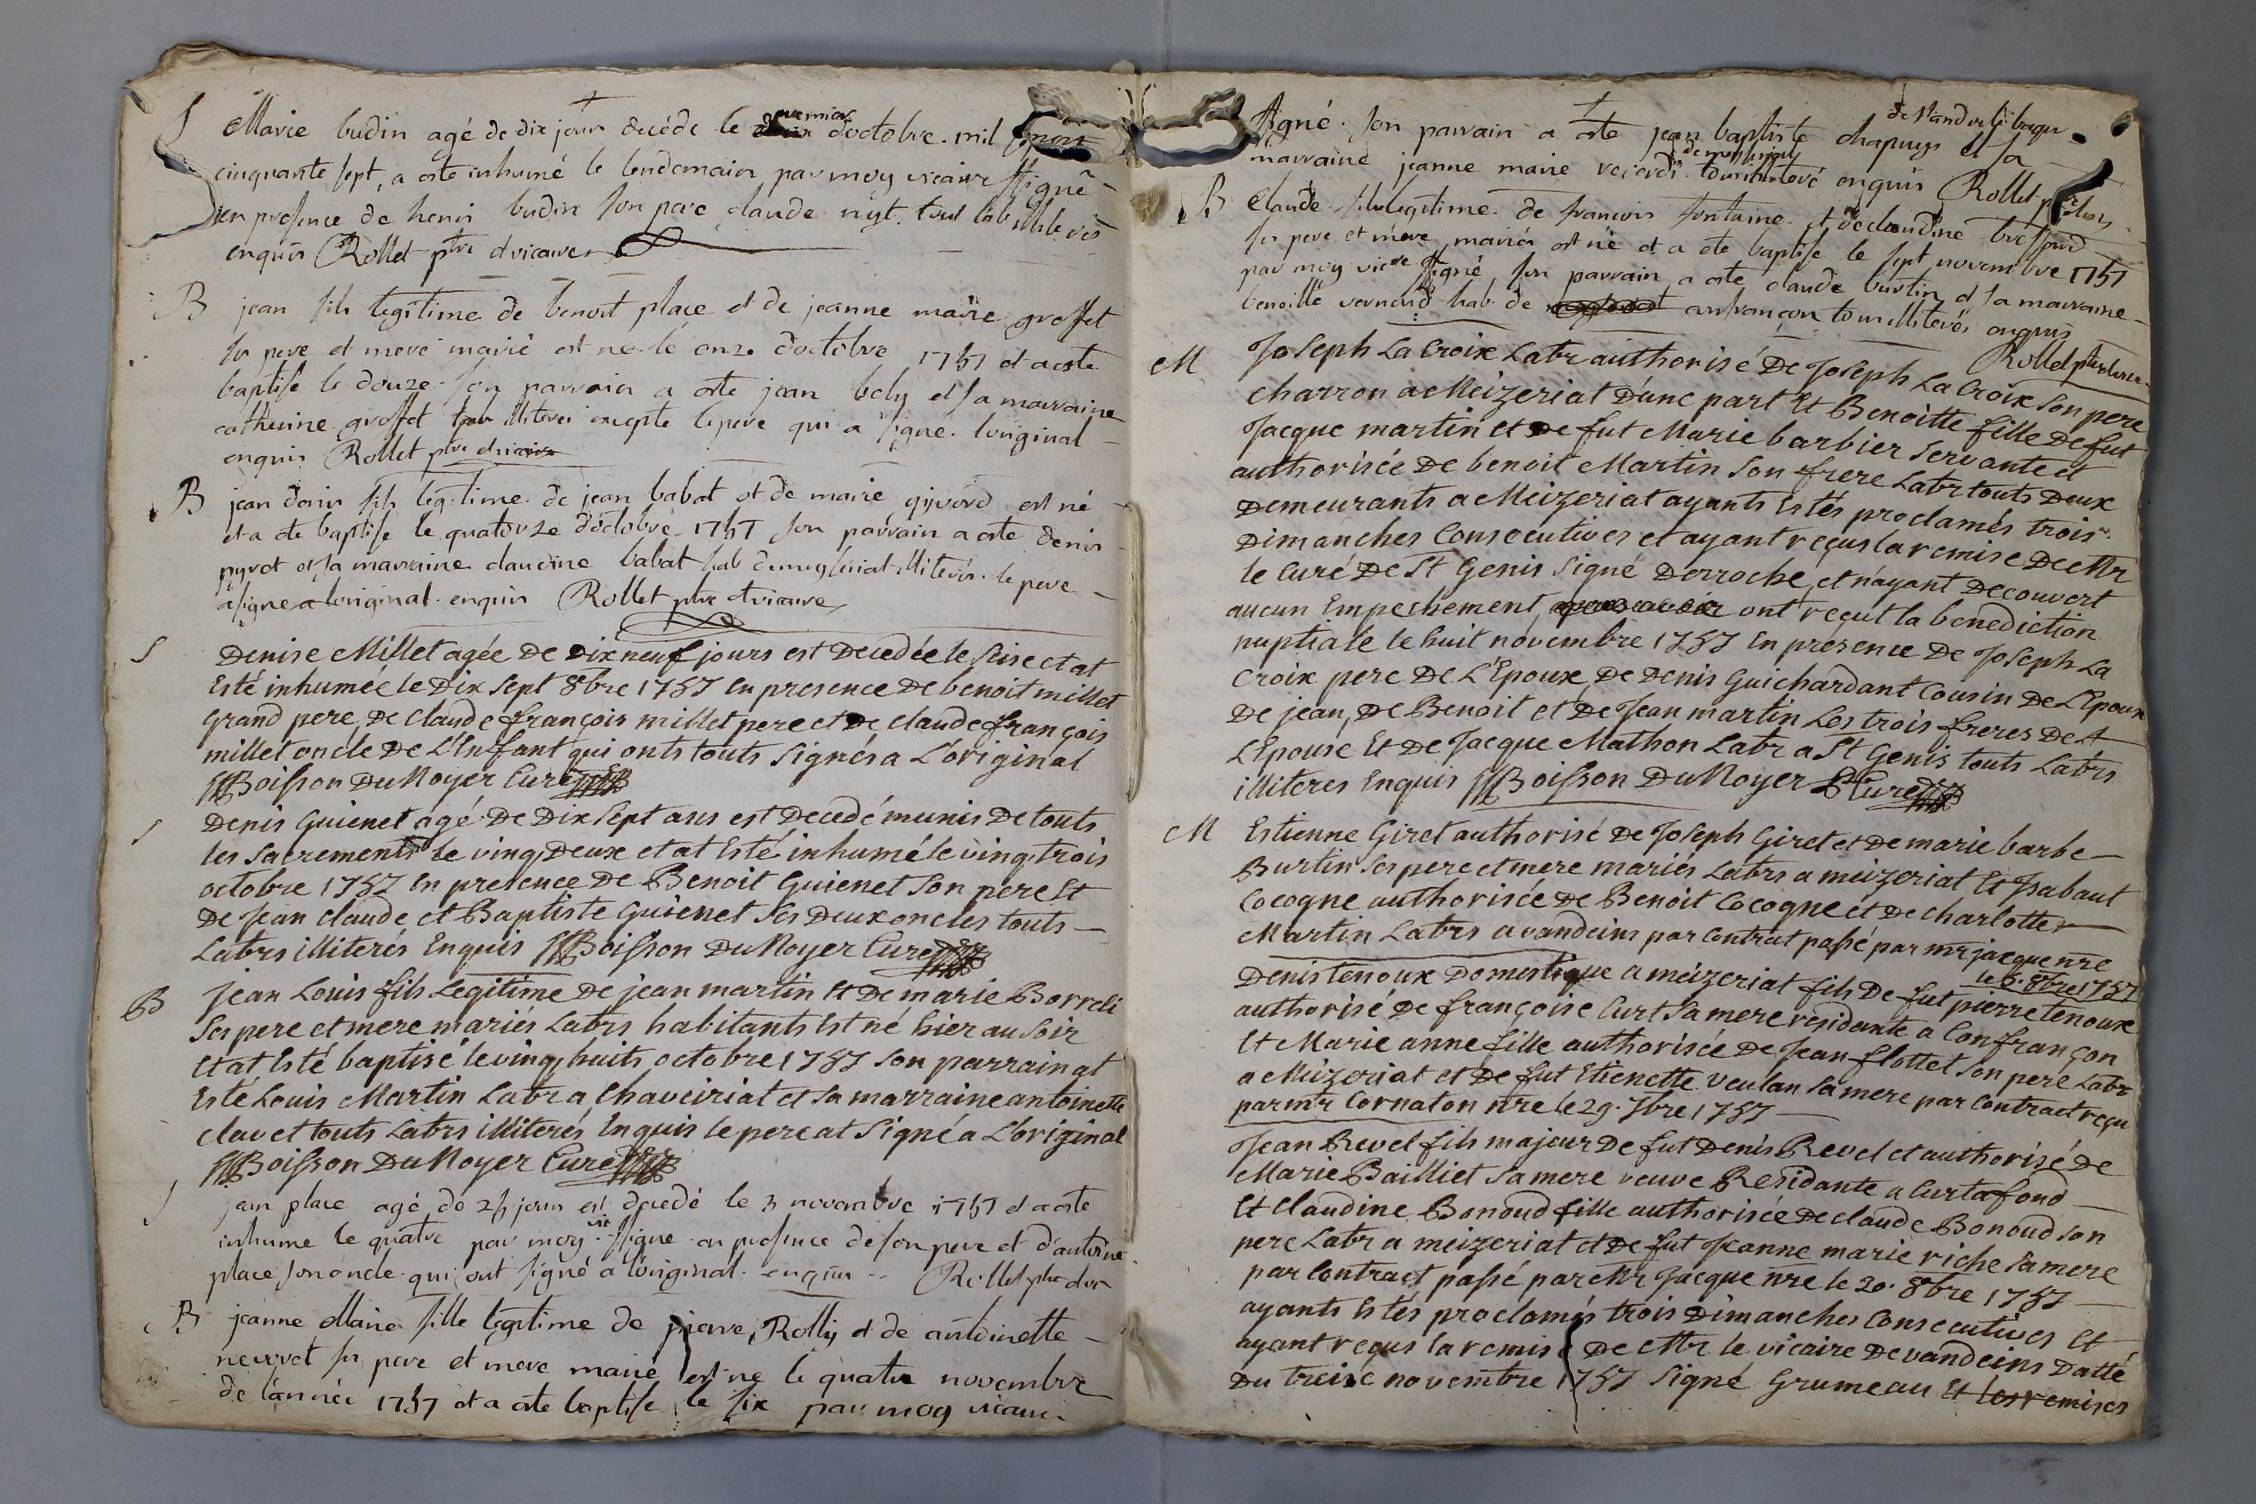 S Marie budin agé de dix jour decéde le premier doctobre mil
cinquante sept, a este inhumé le lendemain par moy vicaire ssigné
en presence de henri budin son pere claude tout lab illiterés
enquis Rollet ptre et vicaire
B jean fils legitime de benoit place et de jeanne marie groffet
ses pere et mere mariés est né le onze doctobre 1757 et a este
baptise le douze son parrain a este jean bely et sa marraine
catherine groffet tous illiterés excepte le pere qui a signe loriginal
enquis Rollet ptre et vicaire
B jean denis fils legitime de jean babat et de marie est né
et a ete baptise le quatorze doctobre 1757 son parrain a este denis
pyrot et sa marraine claudine babat hab de illiterés le pere
a signe a loriginal enquis Rollet ptre et vicaire
S Denise Millet agée De Dix neuf jours est Decedée le seise et at
Esté inhumée le Dix sept 8bre 1757 En presence De benoit millet
grand pere, De claude françois millet pere et De claude françois
millet oncle De L'Enfant qui onts touts signés a L'original
Boisson Du Noyer Curé
S Denis Guienet agé De Dix sept ans est Decedé munis De touts
les sacrements le vingt Deux et at Esté inhumé le vingt trois
octobre 1757 En presence De Benoit Guienet son pere Et
De Jean claude et Baptiste Guienet ses Deux oncles touts
Labrs illiterés Enquis Boisson Du Noyer Curé
B Jean Louis fils Legitime De jean martin Et De marie Borreli
ses pere et mere mariés Labrs habitants Est né hier au soir
et at Esté baptisé le vingt huits octobre 1757 son parrain at
Esté Louis Martin Labr a Chaveiriat et sa marraine antoinette
clavet touts Labrs illiterés Enquis le pere at signé a L'original
Boisson Du Noyer Curé
S jean place agé de 25 jours est decedé le 3 novembre 1757 et a este
inhume le quatre par moy vic ssigne en presence de son pere et d'antoine
place son oncle qui ont signé a l'original enquis Rollet ptre et vic
B jeanne Marie fille legitime de pierre Rolly et de antoinette
neuvret ses pere et mere marié est ne le quatre novembre
de lannée 1757 et a este baptise le six par moy vicaire
ssigné son parrain a este jean baptiste chapuys de st andre le bagé et sa
marraine jeanne marie tous illiteré enquis Rollet ptre et vic
B Claude fils legitime de francois fontaine et de claudine
ses pere et mere mariés est né et a ete baptise le sept novembre 1757
par moy vicre ssigné, son parrain a este claude burtin et sa marraine
benoitte vernoud hab de confrançon tous illiterés enquis
Rollet ptre et vicaire
M Joseph La Croix Labr authorisé De Joseph La Croix son pere
charron a Meizeriat D'une part Et Benoitte fille De fut
Jacque martin et De fut Marie barbier servante et
authorisée De benoit Martin son frere Labr touts Deux
Demeurants a Meizeriat ayants Estés proclamés trois
Dimanches Consecutives et ayant reçus la remise De Mr
le Curé De St Genis signé Derroche, et n'ayant Decouvert
aucun Empechement, ont reçut la benediction
nuptiale le huit novembre 1757 En presence De Joseph La
Croix pere De L'Epoux, De Denis Guichardant Cousin De L'Epoux
De jean, De Benoit et De Jean martin Les trois freres De
L'Epouse Et De Jacque Mathon Labr a St Genis touts Labrs
illiteres Enquis Boisson Du Noyer Curé
M Estienne Giret authorisé De Joseph Giret et De marie barbe
Burtin ses pere et mere mariés Labrs a meizeriat Et Isabaut
Cocogne authorisée De Benoit Cocogne et De charlotte
Martin Labrs a vandeins par Contrat passé par mr jacque nre
le 6. 8bre 1757
Denis tenoux Domestique a meizeriat fils De fut pierre tenoux
authorisé De françoise Curt sa mere residante a Confrançon
Et Marie anne fille authorisée De Jean flottet son pere Labr
a Meizeriat et De fut Etienette veulan sa mere par Contract reçu
par mr Cornaton nre le 29. 7bre 1757
Jean Revel fils majeur De fut Denis Revel et authorisé De
Marie Bailliet sa mere veuve Residante a Curtafond
Et claudine Bonoud fille authorisée De claude Bonoud son
pere Labr a meizeriat et De fut Jeanne marie riche sa mere
par Contract passé par Mr Jacque nre le 20. 8bre 1757
ayants Estés proclamés trois Dimanches Consecutives Et
ayant reçus la remise De Mr le vicaire De vandeins Datté
Du treise novembre 1757 signé Grumeau Et les remises